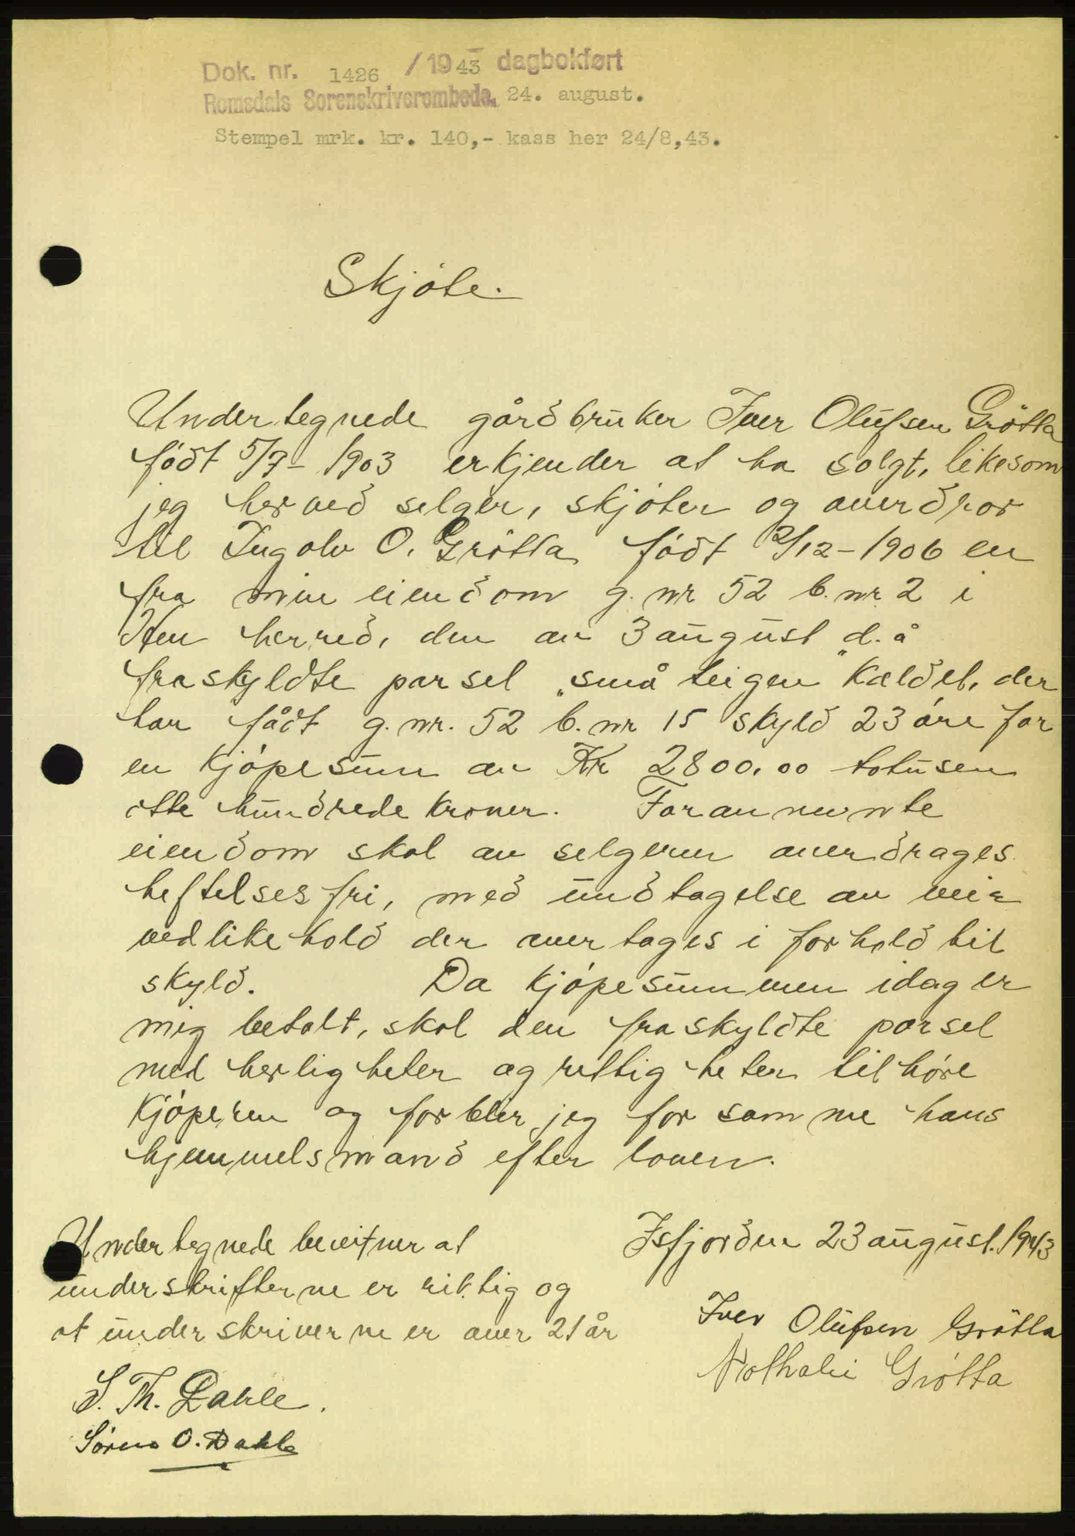 Dok. nr. 1426 /1943 dagbokført
Romsdals Sorenskriverembede, 24. august.
Stempel mrk. kr. 140,- kass her 24/8,43.
Skjøte.
Undertegnede gårdbruker Iver Olufsen Grøtta
født 5/7- 1903 erkjender at ha solgt, likesom
jeg herved selger, skjøter og overdrar
til Ingolv O. Grøtta født 2/12-1906 en
fra min eiendom g. nr 52 b. nr. 2 i
Hen herred, den av 3 august d.å
fraskyldte parsel "små teigen" kaldet, der
har fådt g. nr. 52 b. nr 15 skyld 23 øre for
en kjøpesum av Kr 2800,00 totusen
otte hundrede kroner. Forannevnte
eiendom skal av selgeren overdrages
heftelsesfri, med undtagelse av vei=
vedlikehold der overtages i forhold til
skyld. Da kjøpesummen idag er
mig betalt, skal den fraskyldte parsel
med herligheter og rettigheter tilhøre
kjøperen og forbler jeg for samme hans
hjemmelsmand efter loven.
Isfjorden 23 august. 1943
Undertegnede bevitner at
underskrifterne er riktig og
at underskriverne er over 21 år
Iver Olufsen Grøtta
Nathalie Grøtta
S. Th. Dahle.
Søren O. Dahle